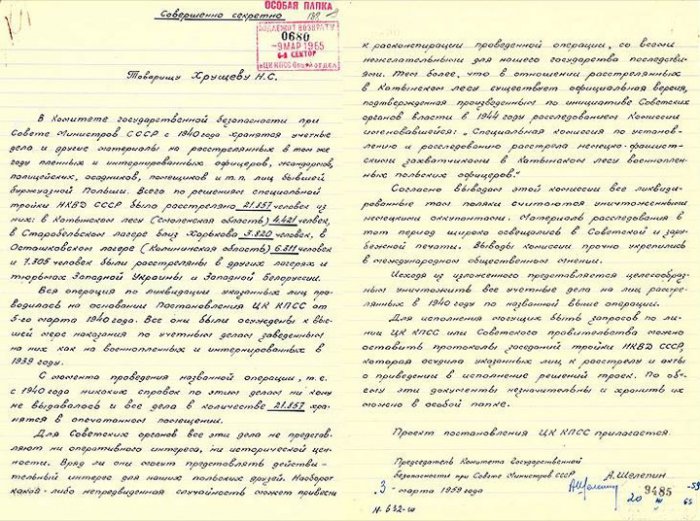 Совершенно секретно
ОСОБАЯ ПАПКА
ПОДЛЕЖИТ ВОЗВРАТУ
0680
-9 МАР 1965
6-й СЕКТОР
ЦК КПСС Общий ОТДЕЛ
Товарищу Хрущеву Н.С.
В Комитете государственной безопасности при
Совете Министров СССР с 1940 года хранятся учетные
дела и другие материалы на расстрелянных в том же
году пленных и интернированных офицеров, жандармов,
полицейских, осадников, помещиков и т.п. лиц бывшей
буржуазной Польши. Всего по решениям специальной
тройки НКВД СССР было расстреляно 21.857 человек, из
них: в Катынском лесу (Смоленская область) 4.421 человек,
в Старобельском лагере близ Харькова 3.820 человек, в
Осташковском лагере (Калининская область) 6.311 человек
и 7.305 человек были расстреляны в других лагерях и
тюрьмах Западной Украины и Западной Белоруссии.
Вся операция по ликвидации указанных лиц про-
водилась на основании Постановления ЦК КПСС от
5-го марта 1940 года. Все они были осуждены к выс-
шей мере наказания по учетным делам, заведенным
на них как на военнопленных и интернированных в
1939 году.
С момента проведения названной операции, т.е.
с 1940 года никаких справок по этим делам ни кому
не выдавалось и все дела в количестве 21.857 хра-
нятся в опечатанном помещении.
Для Советских органов все эти дела не представ-
ляют ни оперативного интереса, ни исторической цен-
ности. Вряд ли они могут представлять действи-
тельный интерес для наших польских друзей. Наоборот
какая-либо непредвиденная случайность может привести
к расконспирации проведенной операции, со всеми
нежелательными для нашего государства последстви-
ями. Тем более, что в отношении расстрелянных
в Катынском лесу существует официальная версия,
подтвержденная произведенным по инициативе Советских
органов власти в 1944 году расследованием Комиссии
именовавшейся: „Специальная комиссия по установ-
лению и расследованию расстрела немецко-фашист-
скими захватчиками в Катынском лесу военноплен-
ных польских офицеров."
Согласно выводам этой комиссии все ликвиди-
рованные там поляки считаются уничтоженными
немецкими оккупантами. Материалы расследования в
тот период широко освещались в Советской и зару-
бежной печати. Выводы комиссии прочно укрепились
в международном общественном мнении.
Исходя из изложенного представляется целесообраз-
ным уничтожить все учетные дела на лиц, расстре-
лянных в 1940 году по названной выше операции.
Для исполнения могущих быть запросов по ли-
нии ЦК КПСС или Советского правительства можно
оставить протоколы заседаний тройки НКВД СССР,
которая осудила указанных лиц к расстрелу и акты
о приведении в исполнение решений троек. По объ-
ему эти документы незначительны и хранить их
можно в особой папке.
Проект постановления ЦК КПСС прилагается.
Председатель Комитета Государственной
безопасности при Совете Министров СССР А. Шелепин
3 марта 1959 года
N-632-ш
9485
20